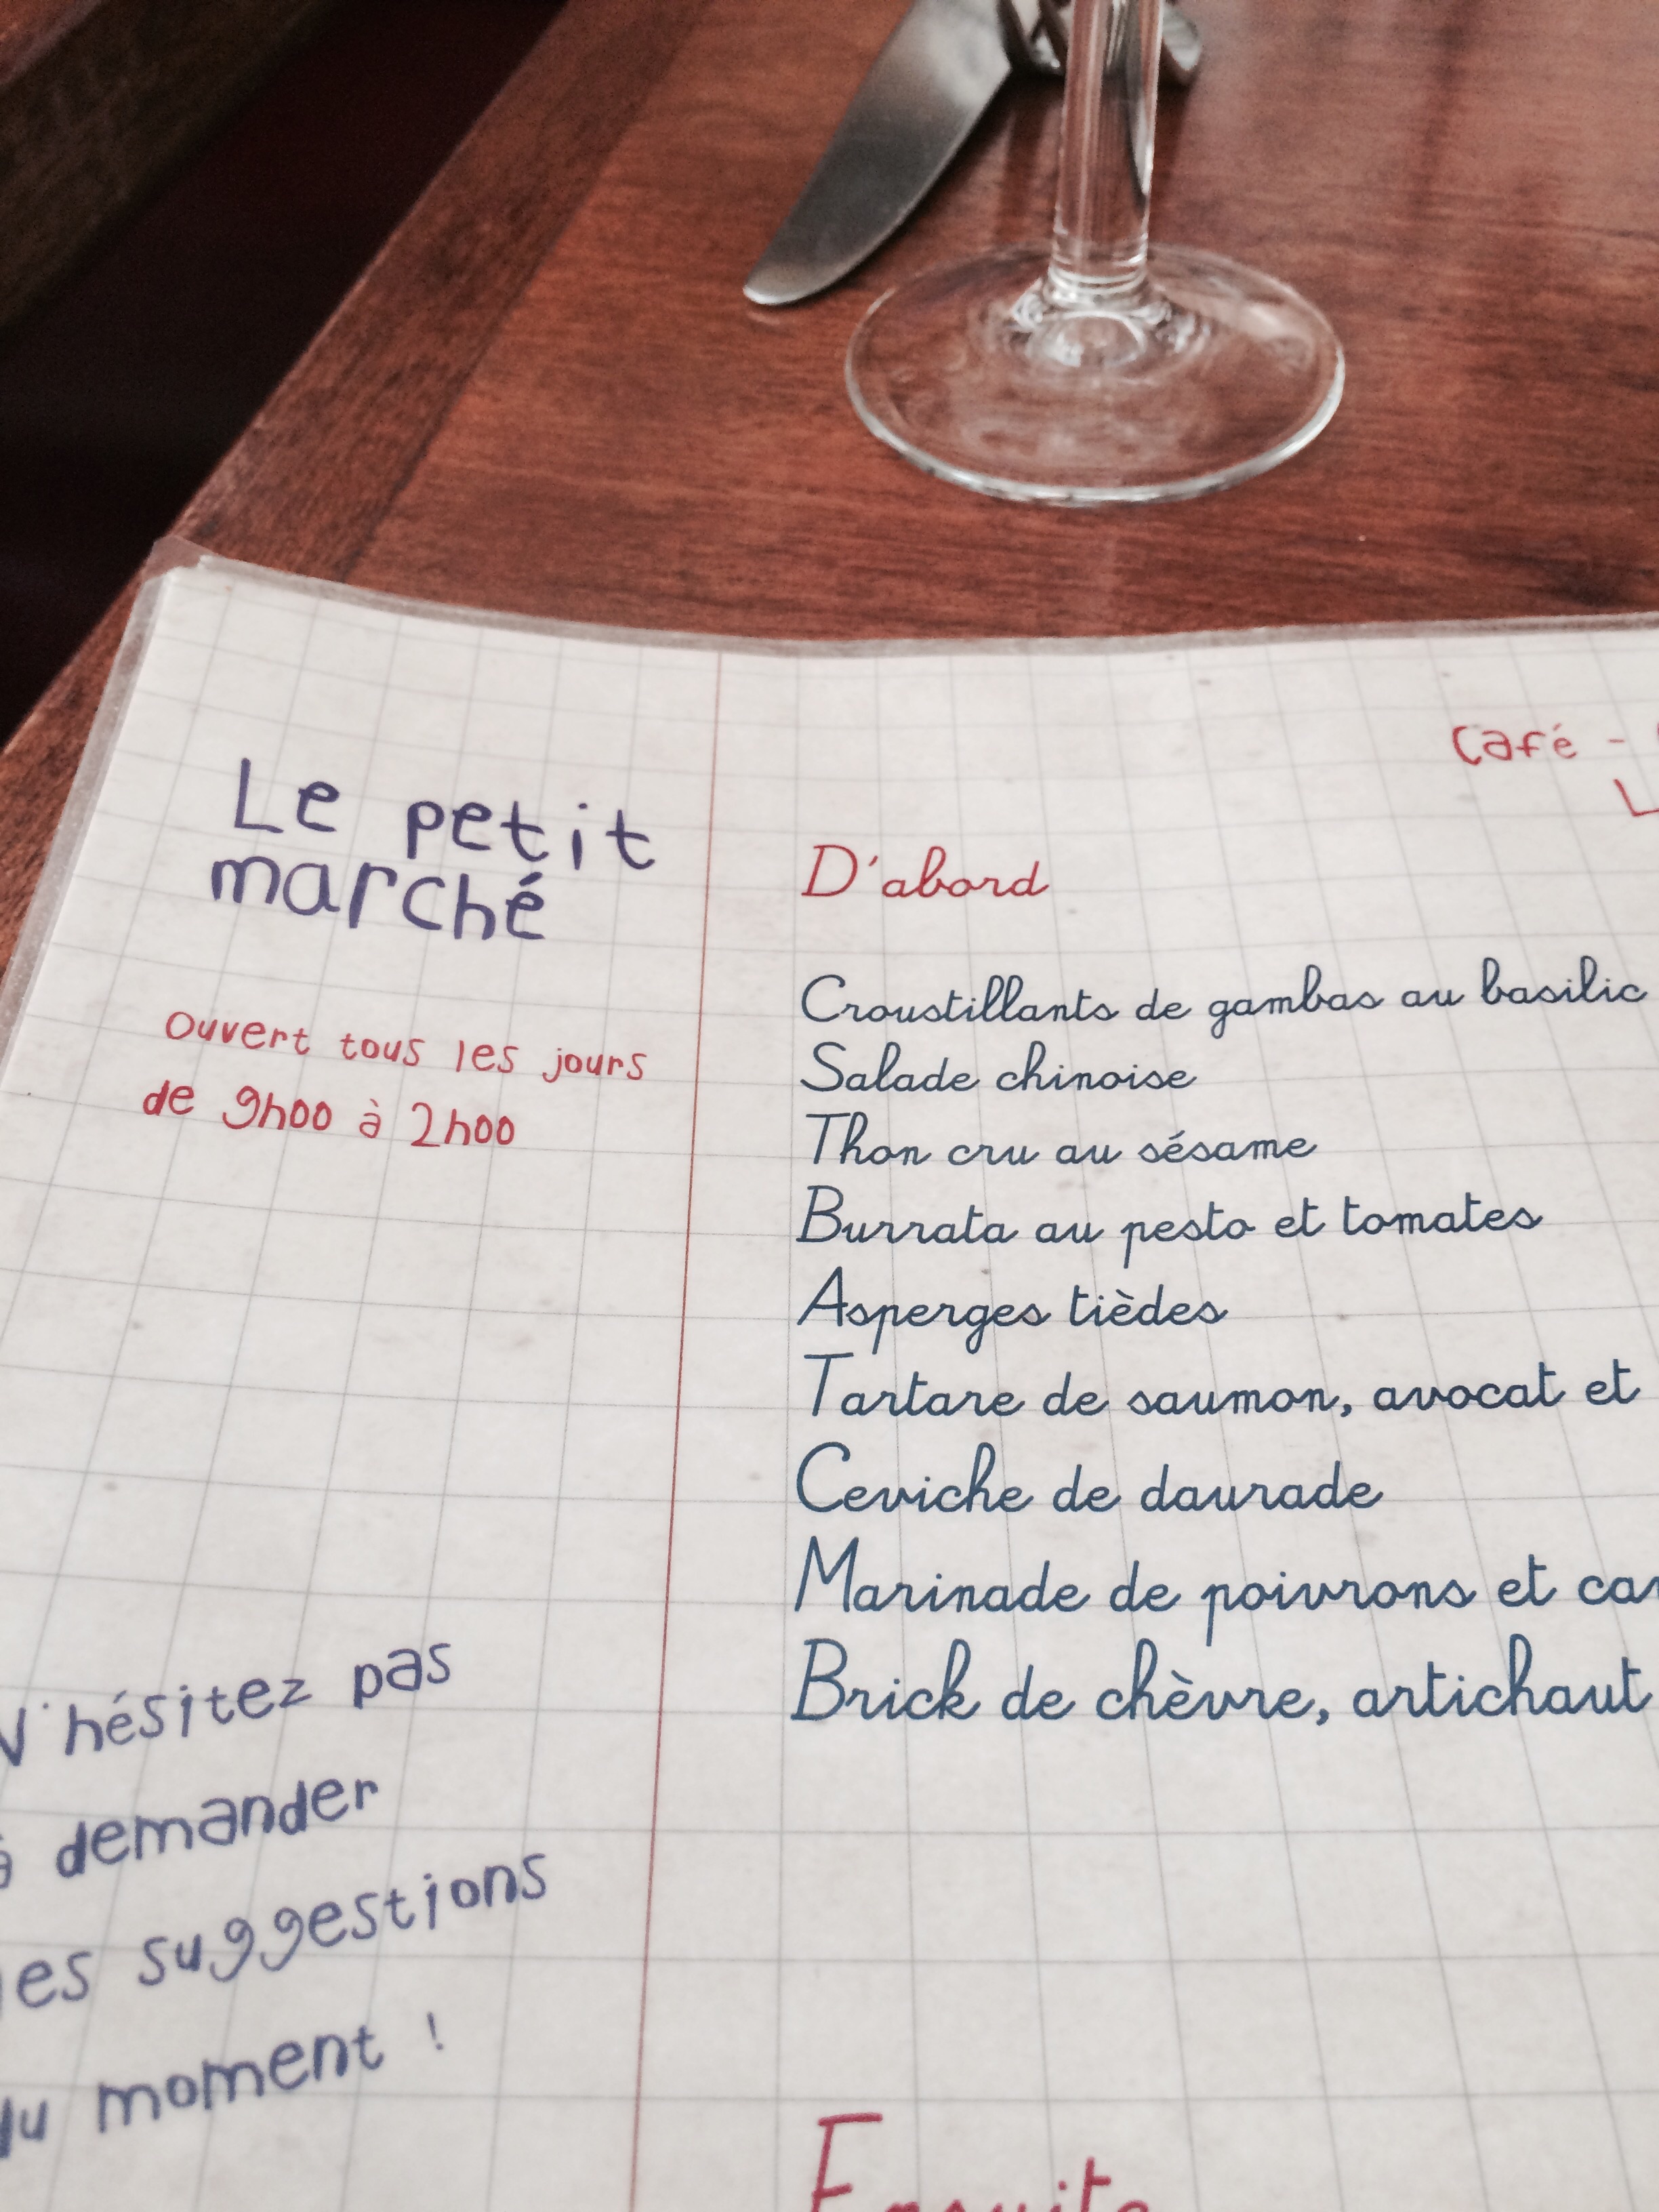 Le petit
marché
Ouvert tous les jours
de 9h00 à 2h00
N'hésitez pas
à demander
les suggestions
du moment !
Café -
D'abord
Croustillants de gambas au basilic
Salade chinoise
Thon cru au sésame
Burrata au pesto et tomates
Asperges tièdes
Tartare de saumon, avocat et
Ceviche de daurade
Marinade de poivrons et
Brick de chèvre, artichaut
Ensuite